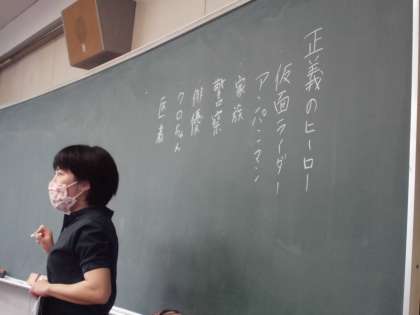 正義のヒーロー
仮面ライダー
アンパンマン
家族
警察
俳優
クロちゃん
医者